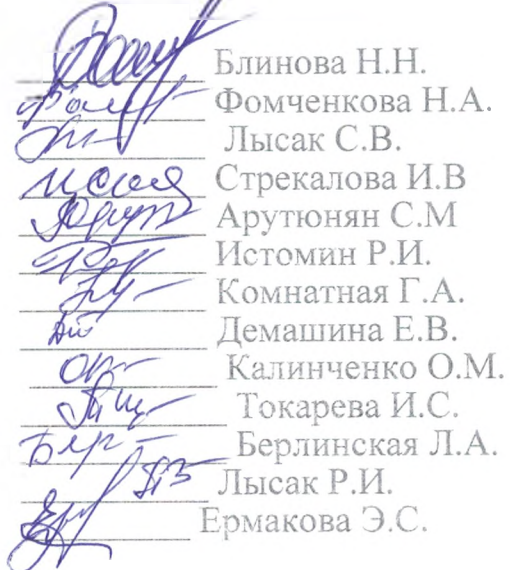 Блинова Н.Н.
Фомченкова Н.А.
Лысак С.В.
Стрекалова И.В
Арутюнян С.М
Истомин Р.И.
Комнатная Г.А.
Демашина Е.В.
Калинченко О.М.
Токарева И.С.
Берлинская Л.А.
Лысак Р.И.
Ермакова Э.С.